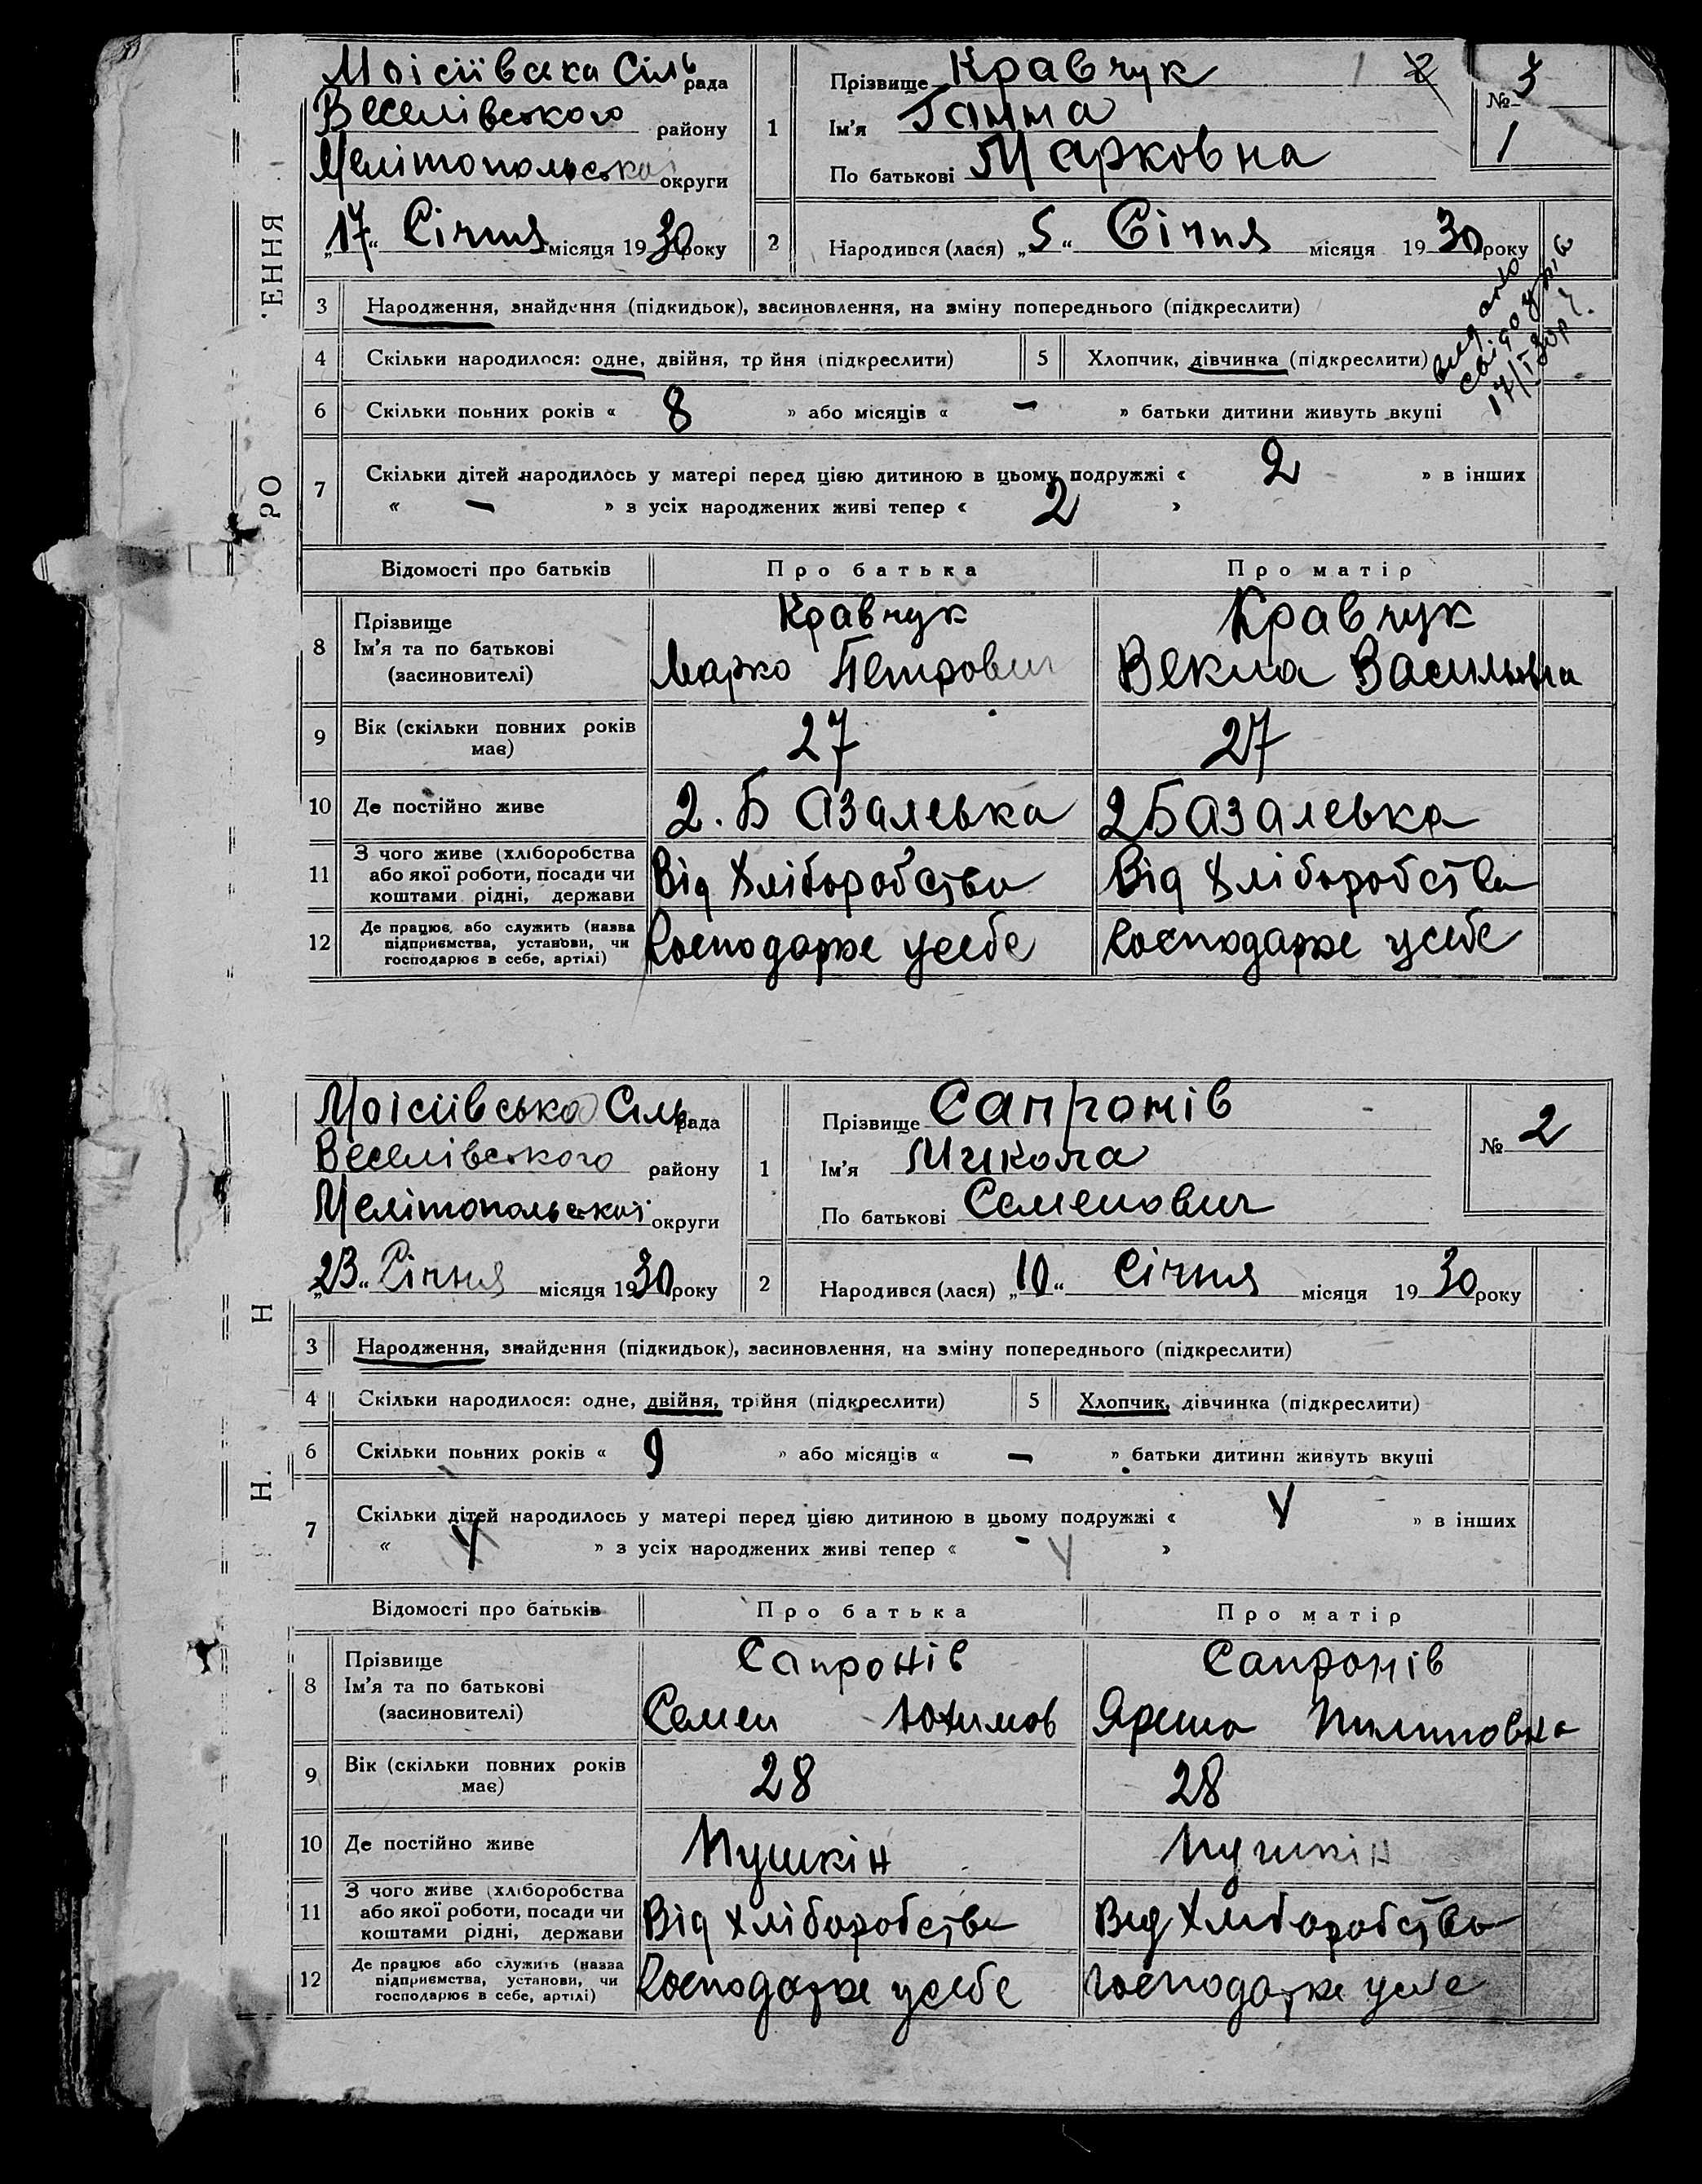 Моісіївська Сіль рада
Веселівського району
Мелітопольська округи
„17“ Січня місяця 1930 року
1
Прізвище Кравчук
Ім'я Ганна
По батькові Марковна
1 2
№ 3
1
2
Народився (лася) „5“ Січня місяця 1930 року
ЕННЯ
РО
3 Народження, знайдення (підкидьок), засиновлення, на зміну попереднього (підкреслити)
4 Скільки народилося: одне, двійня, тр йня (підкреслити)
5 Хлопчик, дівчинка (підкреслити)
6 Скільки повних років « 8 » або місяців « – » батьки дитини живуть вкупі
7 Скільки дітей народилось у матері перед цією дитиною в цьому подружжі « 2 » в інших
« – » з усіх народжених живі тепер « 2 »
Відомості про батьків
Про батька
Про матір
8 Прізвище
Ім'я та по батькові
(засиновителі)
Кравчук
Марко Петрович
Кравчук
Векла Васильовна
9 Вік (скільки повних років
має)
27
27
10 Де постійно живе
2. Базалевка
2 Базалевка
11 З чого живе (хліборобства
або якої роботи, посади чи
коштами рідні, держави
Від Хліборобства
Від Хліборобства
12 Де працює, або служить (назва
підприємства, установи, чи
господарює в себе, артілі)
Господарже усебе
Господарже усебе
Моісіївська Сіль рада
Веселівського району
Мелітопольської округи
„23“ Січня місяця 1930 року
1
Прізвище Сапронів
Ім'я Микола
По батькові Семенович
№ 2
2
Народився (лася) „10“ Січня місяця 1930 року
Н
Н.
3 Народження, знайдення (підкидьок), засиновлення, на зміну попереднього (підкреслити)
4 Скільки народилося: одне, двійня, трійня (підкреслити)
5 Хлопчик, дівчинка (підкреслити)
6 Скільки повних років « 9 » або місяців « – » батьки дитини живуть вкупі
7 Скільки дітей народилось у матері перед цією дитиною в цьому подружжі « 4 » в інших
« 4 » з усіх народжених живі тепер « - 4 »
Відомості про батьків
Про батька
Про матір
8 Прізвище
Ім'я та по батькові
(засиновителі)
Сапронів
Семен Юхимов
Сапронів
Ярина Пилиповна
9 Вік (скільки повних років
має)
28
28
10 Де постійно живе
Пушкін
Пушкін
11 З чого живе (хліборобства
або якої роботи, посади чи
коштами рідні, держави
Від Хліборобства
Від Хліборобства
12 Де працює або служить (назва
підприємства, установи, чи
господарює в себе, артілі)
Господарже усебе
Господарже усебе